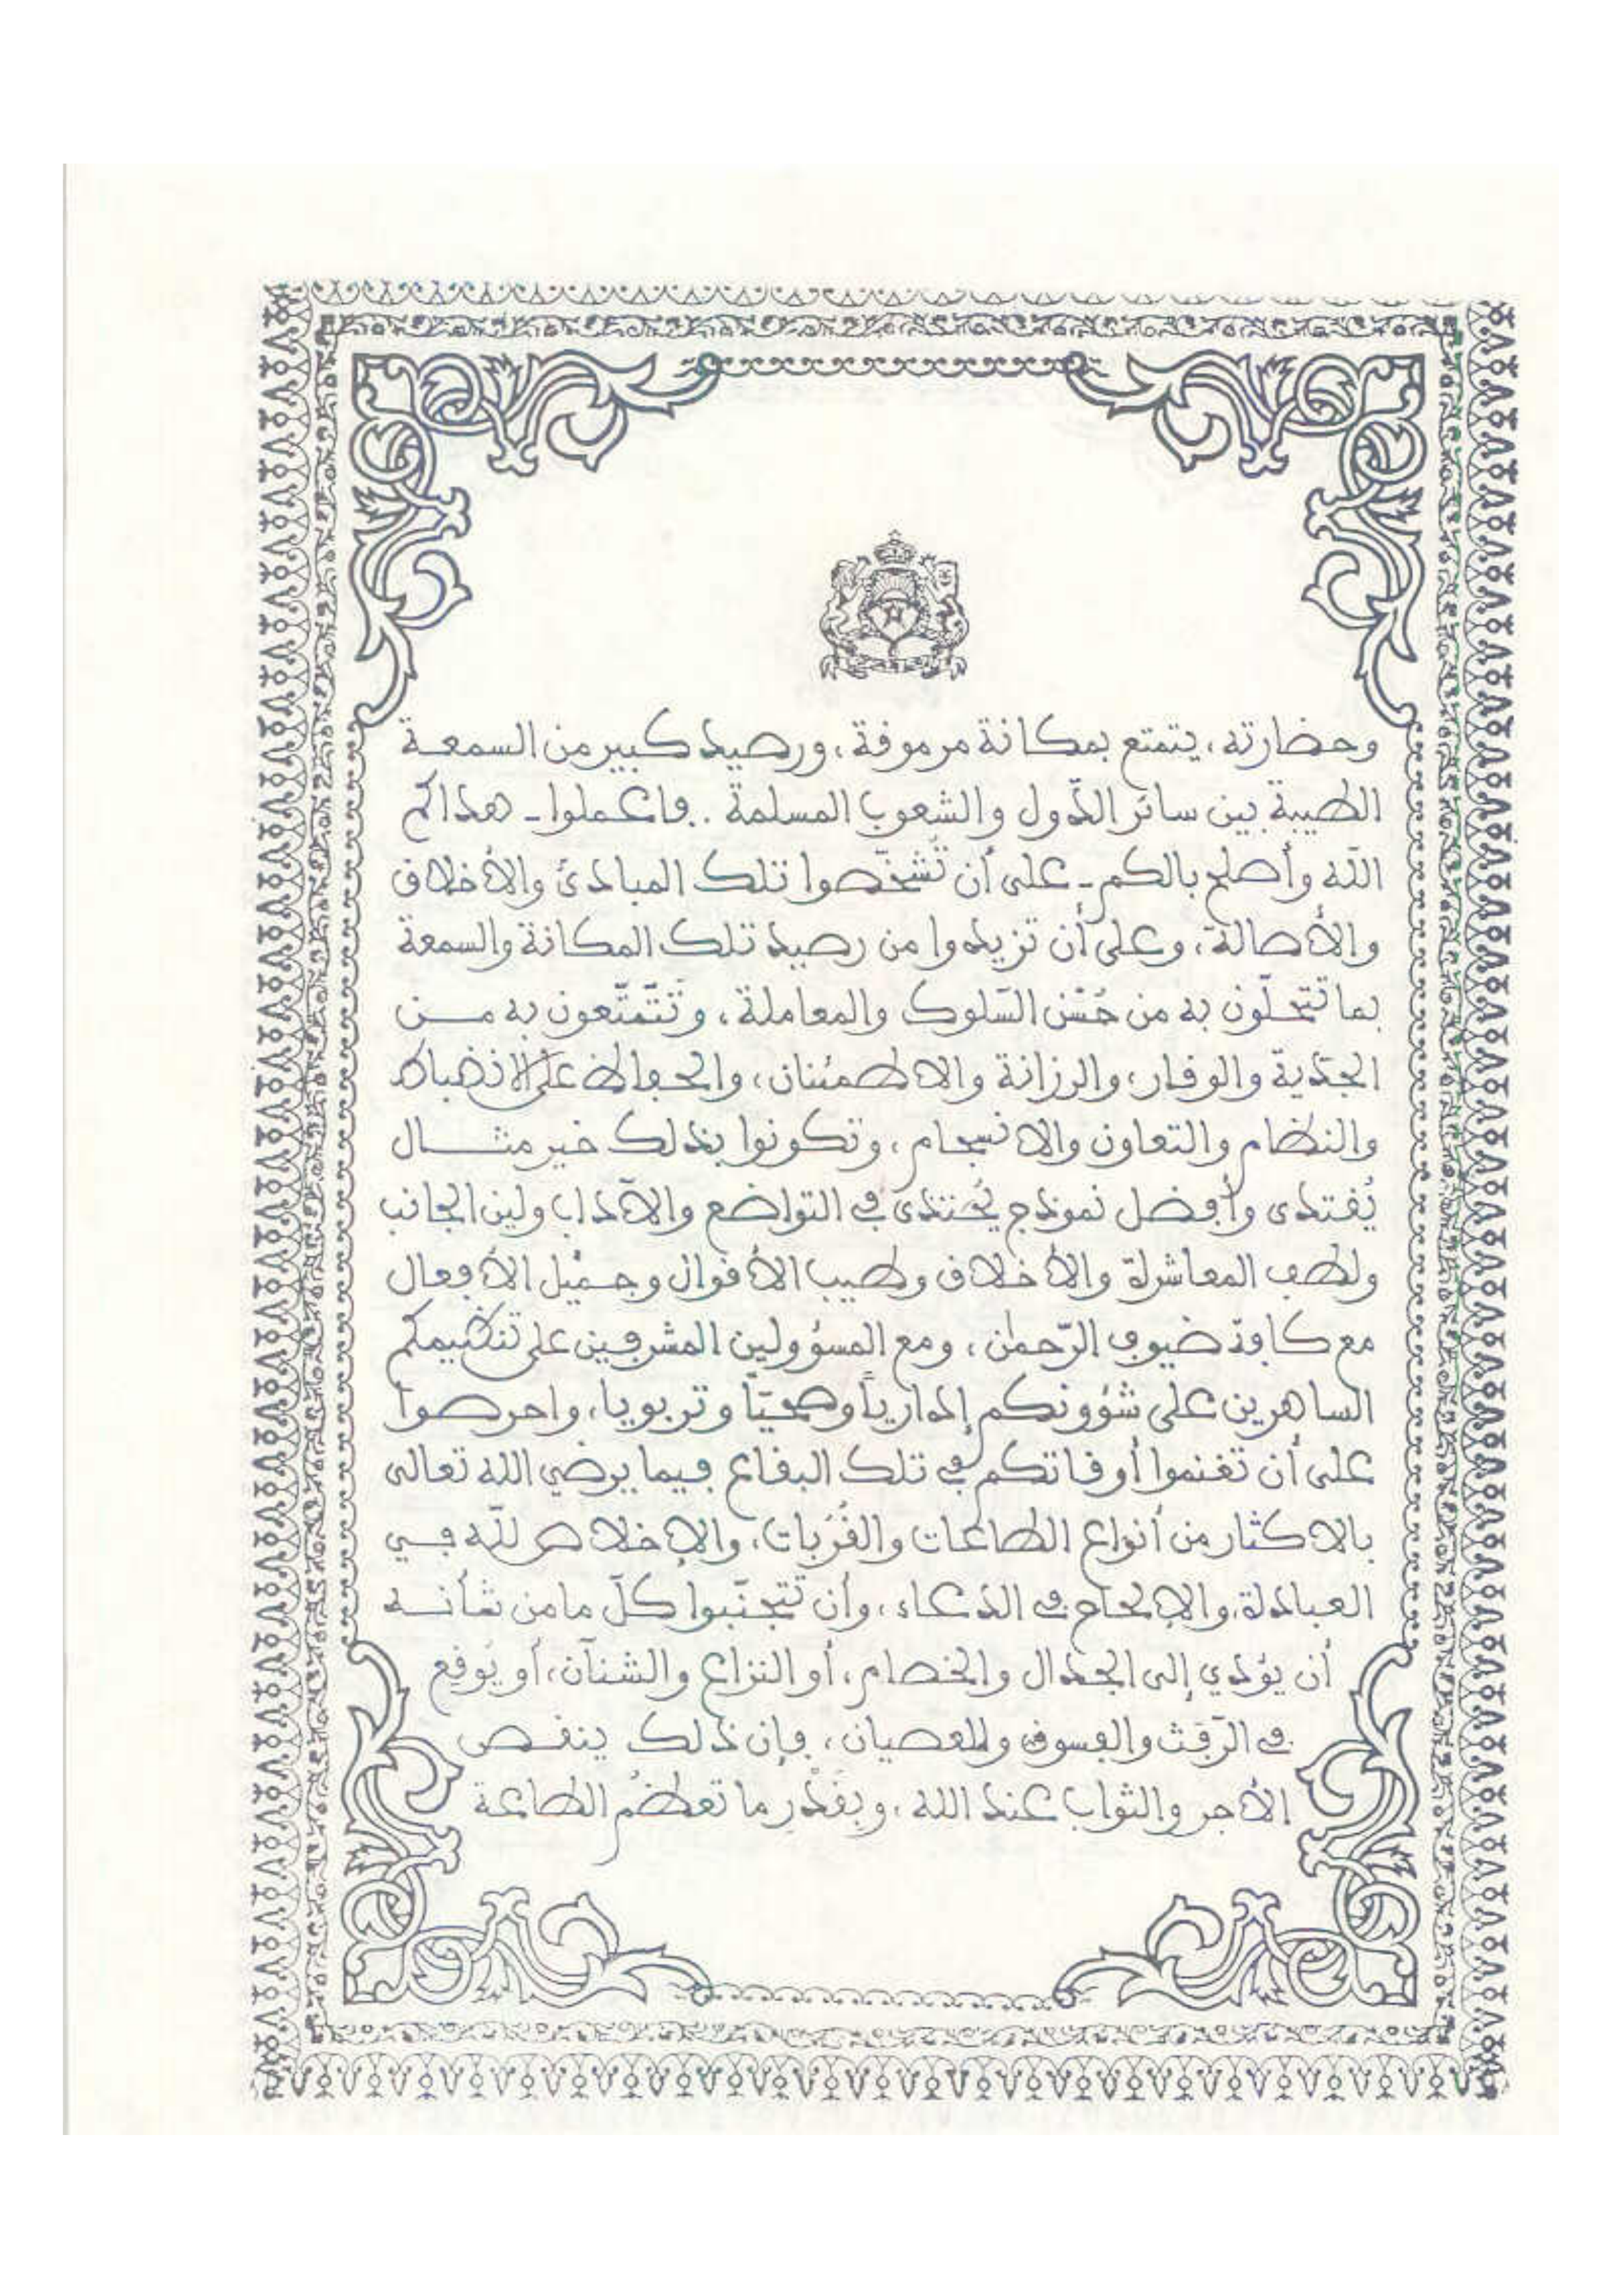 وحضارته، يتمتع بمكانة مرموقة، ورصيد كبير من السمعة
الطيبة بين سائر الدّول والشعوب المسلمة.. فاعملوا - هداكم
الله وأصلح بالكم - على أن تُشخّصوا تلك المبادئ والأخلاق
والأصالة، وعلى أن تزيدوا من رصيد تلك المكانة والسمعة
بما تتحلّون به من حُسْن السّلوك والمعاملة، وتَتَمتّعون به مــن
الجدّية والوقار، والرزانة والاطمئنان، والحفاظ على الانضباط
والنظام والتعاون والانسجام، وتكونوا بذلك خير مثــــال
يُقتدى وأفضل نموذج يُحتذى في التواضع والآداب ولين الجانب
ولطف المعاشرة والأخلاق وطيب الأقوال وجميل الأفعال
مع كافة ضيوف الرّحمٰن، ومع المسؤولين المشرفين على تنظيمكم
الساهرين على شؤونكم إداريّاً وصحيّاً وتربويا، واحرصوا
على أن تغنموا أوقاتكم في تلك البقاع فيما يرضي الله تعالى
بالاكثار من أنواع الطاعات والقُرُبات، والإخلاص للّه فــي
العبادة، والإلحاح في الدّعاء، وأن تتجنّبوا كلّ ما من شأنــه
أن يؤدي إلى الجدال والخصام، أو النزاع والشنآن، أو يُوقع
في الرّفث والفسوق والعصيان، فإن ذلك ينقــص
الأجر والثواب عند الله، وبقَدْرِ ما تعظُم الطاعة